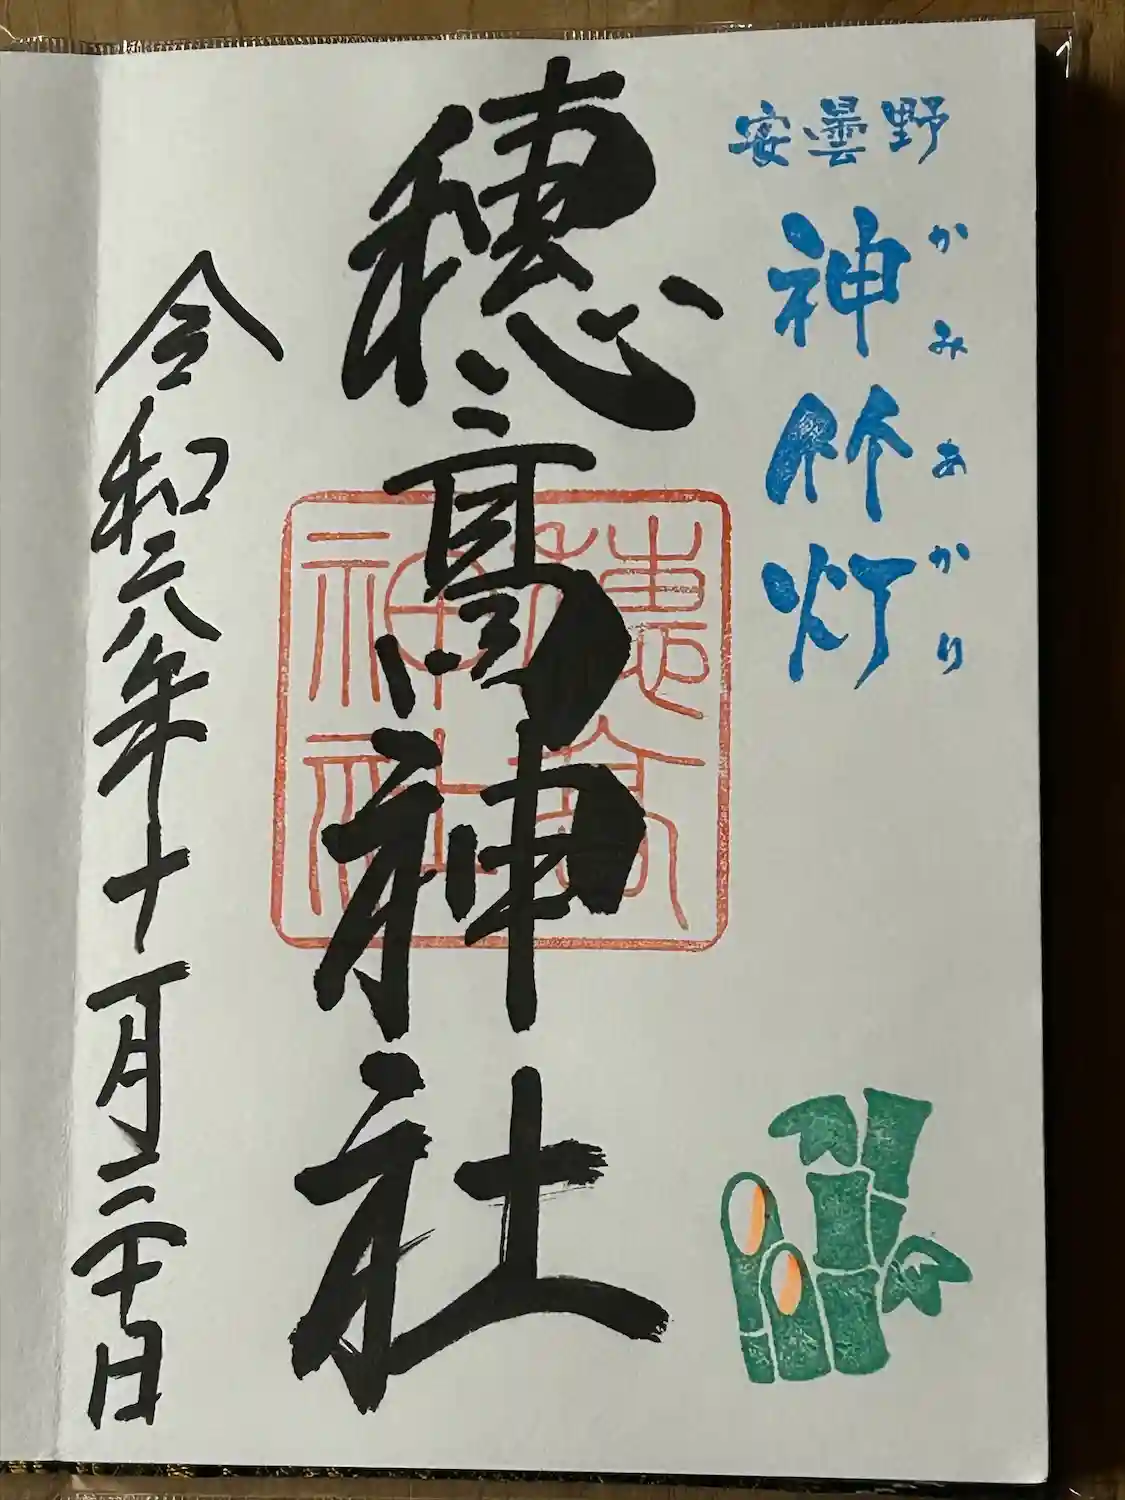 安曇野
神竹灯
かみあかり
穂髙神社
穂高
神社
令和六年十一月三十日